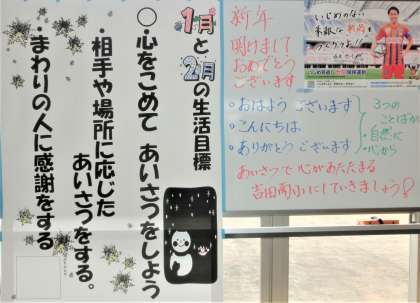 1月と2月の生活目標
○心をこめて あいさつをしよう
・相手や場所に応じた
あいさつをする。
・まわりの人に感謝をする
新年
明けまして
おめでとう
ございます
・おはよう ございます
・こんにちは
・ありがとう ございます
3つの
ことばが
自然に
心から
あいさつで 心があたたまる
吉田南小にしていきましょう!
いじめのない